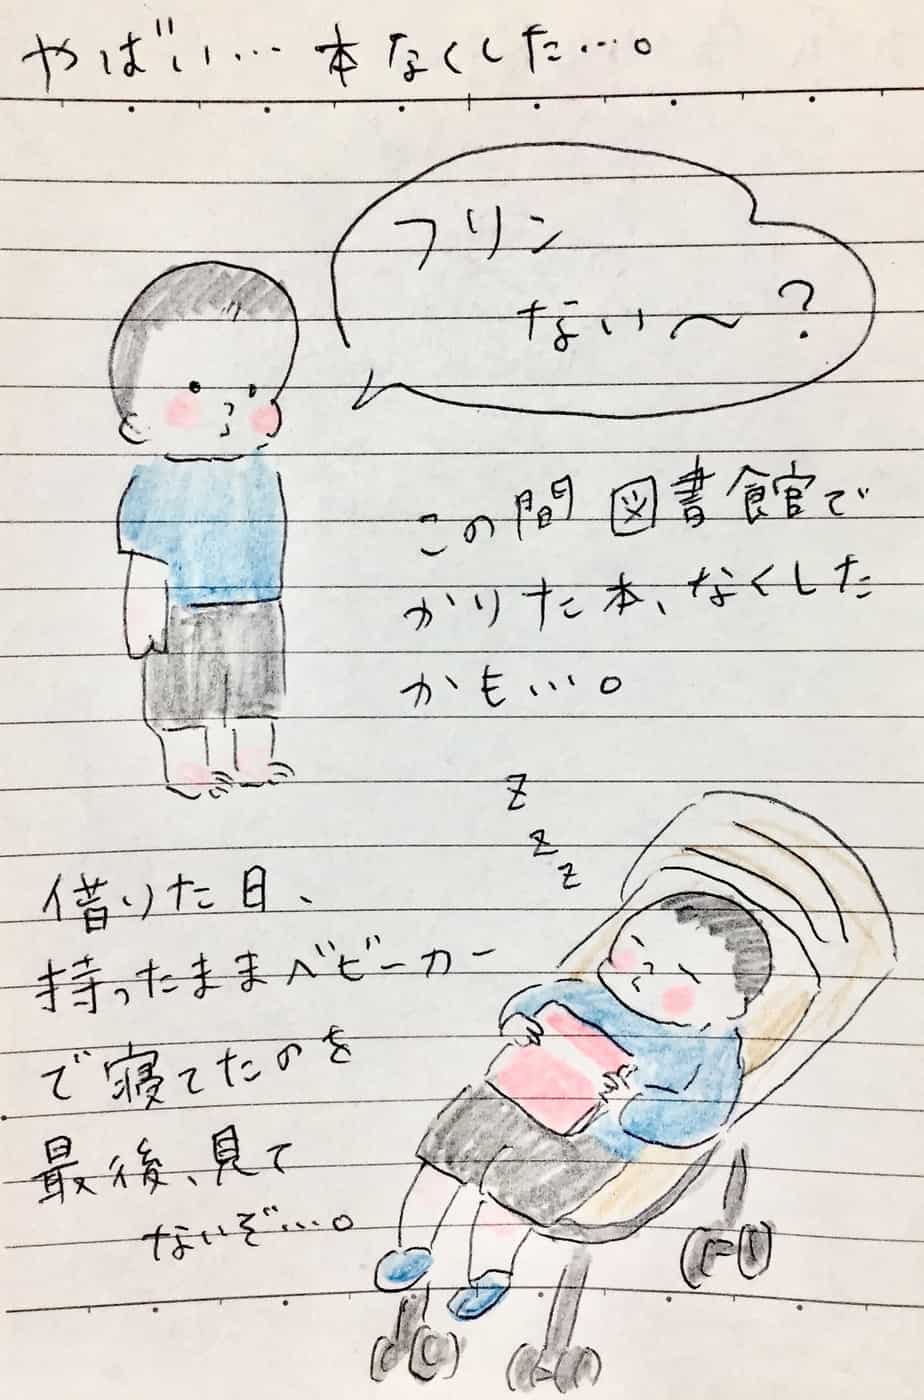 やばい… 本なくした…。
フリン
ない〜?
この間 図書館で
かりた本、なくした
かも…。
z
z
z
借りた日、
持ったままベビーカー
で寝てたのを
最後、見て
ないぞ…。